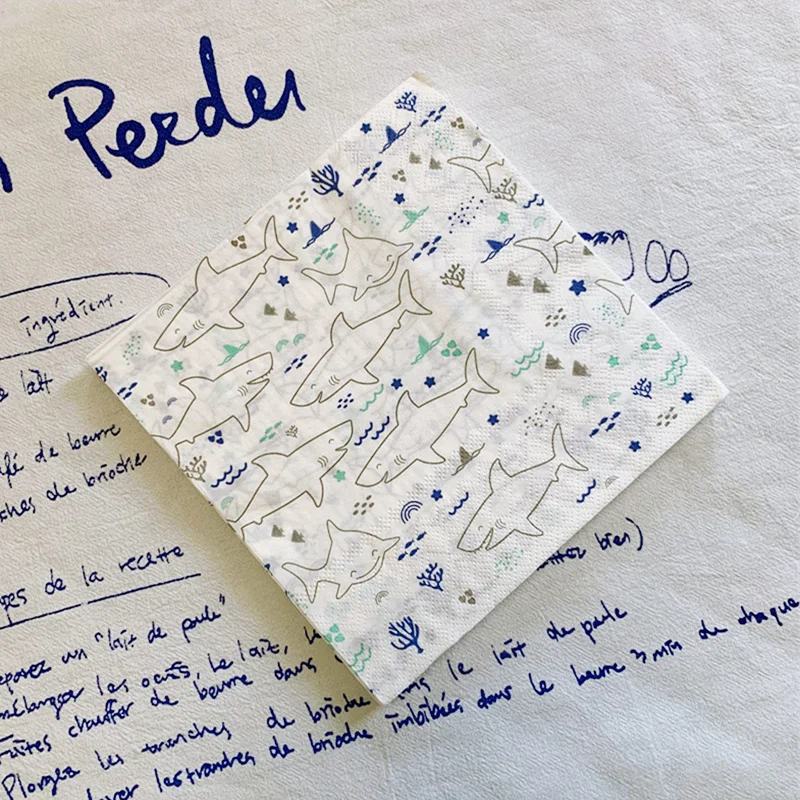 Perdu
ingrédient.
e lait
afé de beurre
ches de brioche
pes de la recette
"lait de poule"
mélanger les oeufs, le lait,
faites chauffer de beurre dans
bien)
Plongez les tranches de brioche le lait de poule
les tranches de brioche imbibées dans le beurre 3 min de chaque